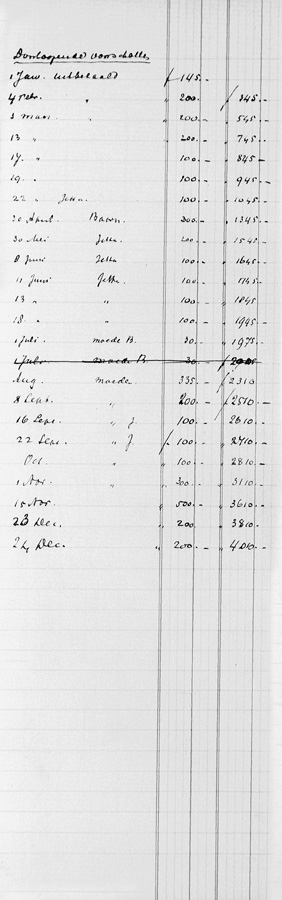 Doorloopende voorschotten
1 Jan. uitbetaald f 145.-
4 Febr. " " 200.- f 345.-
3 Maart " " 200.- " 545.-
13 " " 200.- " 745.-
17 " " 100.- " 845.-
19 " " 100.- " 945.-
22 " Jetta " 100.- " 1045.-
20 April. Baron. " 300.- " 1345.-
30 Mei Jetta " 200.- " 1545.-
8 Juni Jetta " 100.- " 1645.-
11 Juni Jetta. " 100.- " 1745.-
13 " " " 100.- " 1845.-
18 " " " 100.- " 1945.-
1 Juli moede B. " 30.- " 1975.-
1 Juli moede B. " 30.-
Aug. moede " 335.- f 2310
8 Sept. " " 200.- f 2510.-
16 Sept. " J. " 100.- " 2610.-
22 Sept. " J. f 100.- " 2710.-
Oct. " " 100.- " 2810.-
1 Nov. " " 300.- " 3110.-
15 Nov. " 500.- " 3610.-
23 Dec. " 200.- " 3810.-
24 Dec. " 200.- " 4010.-